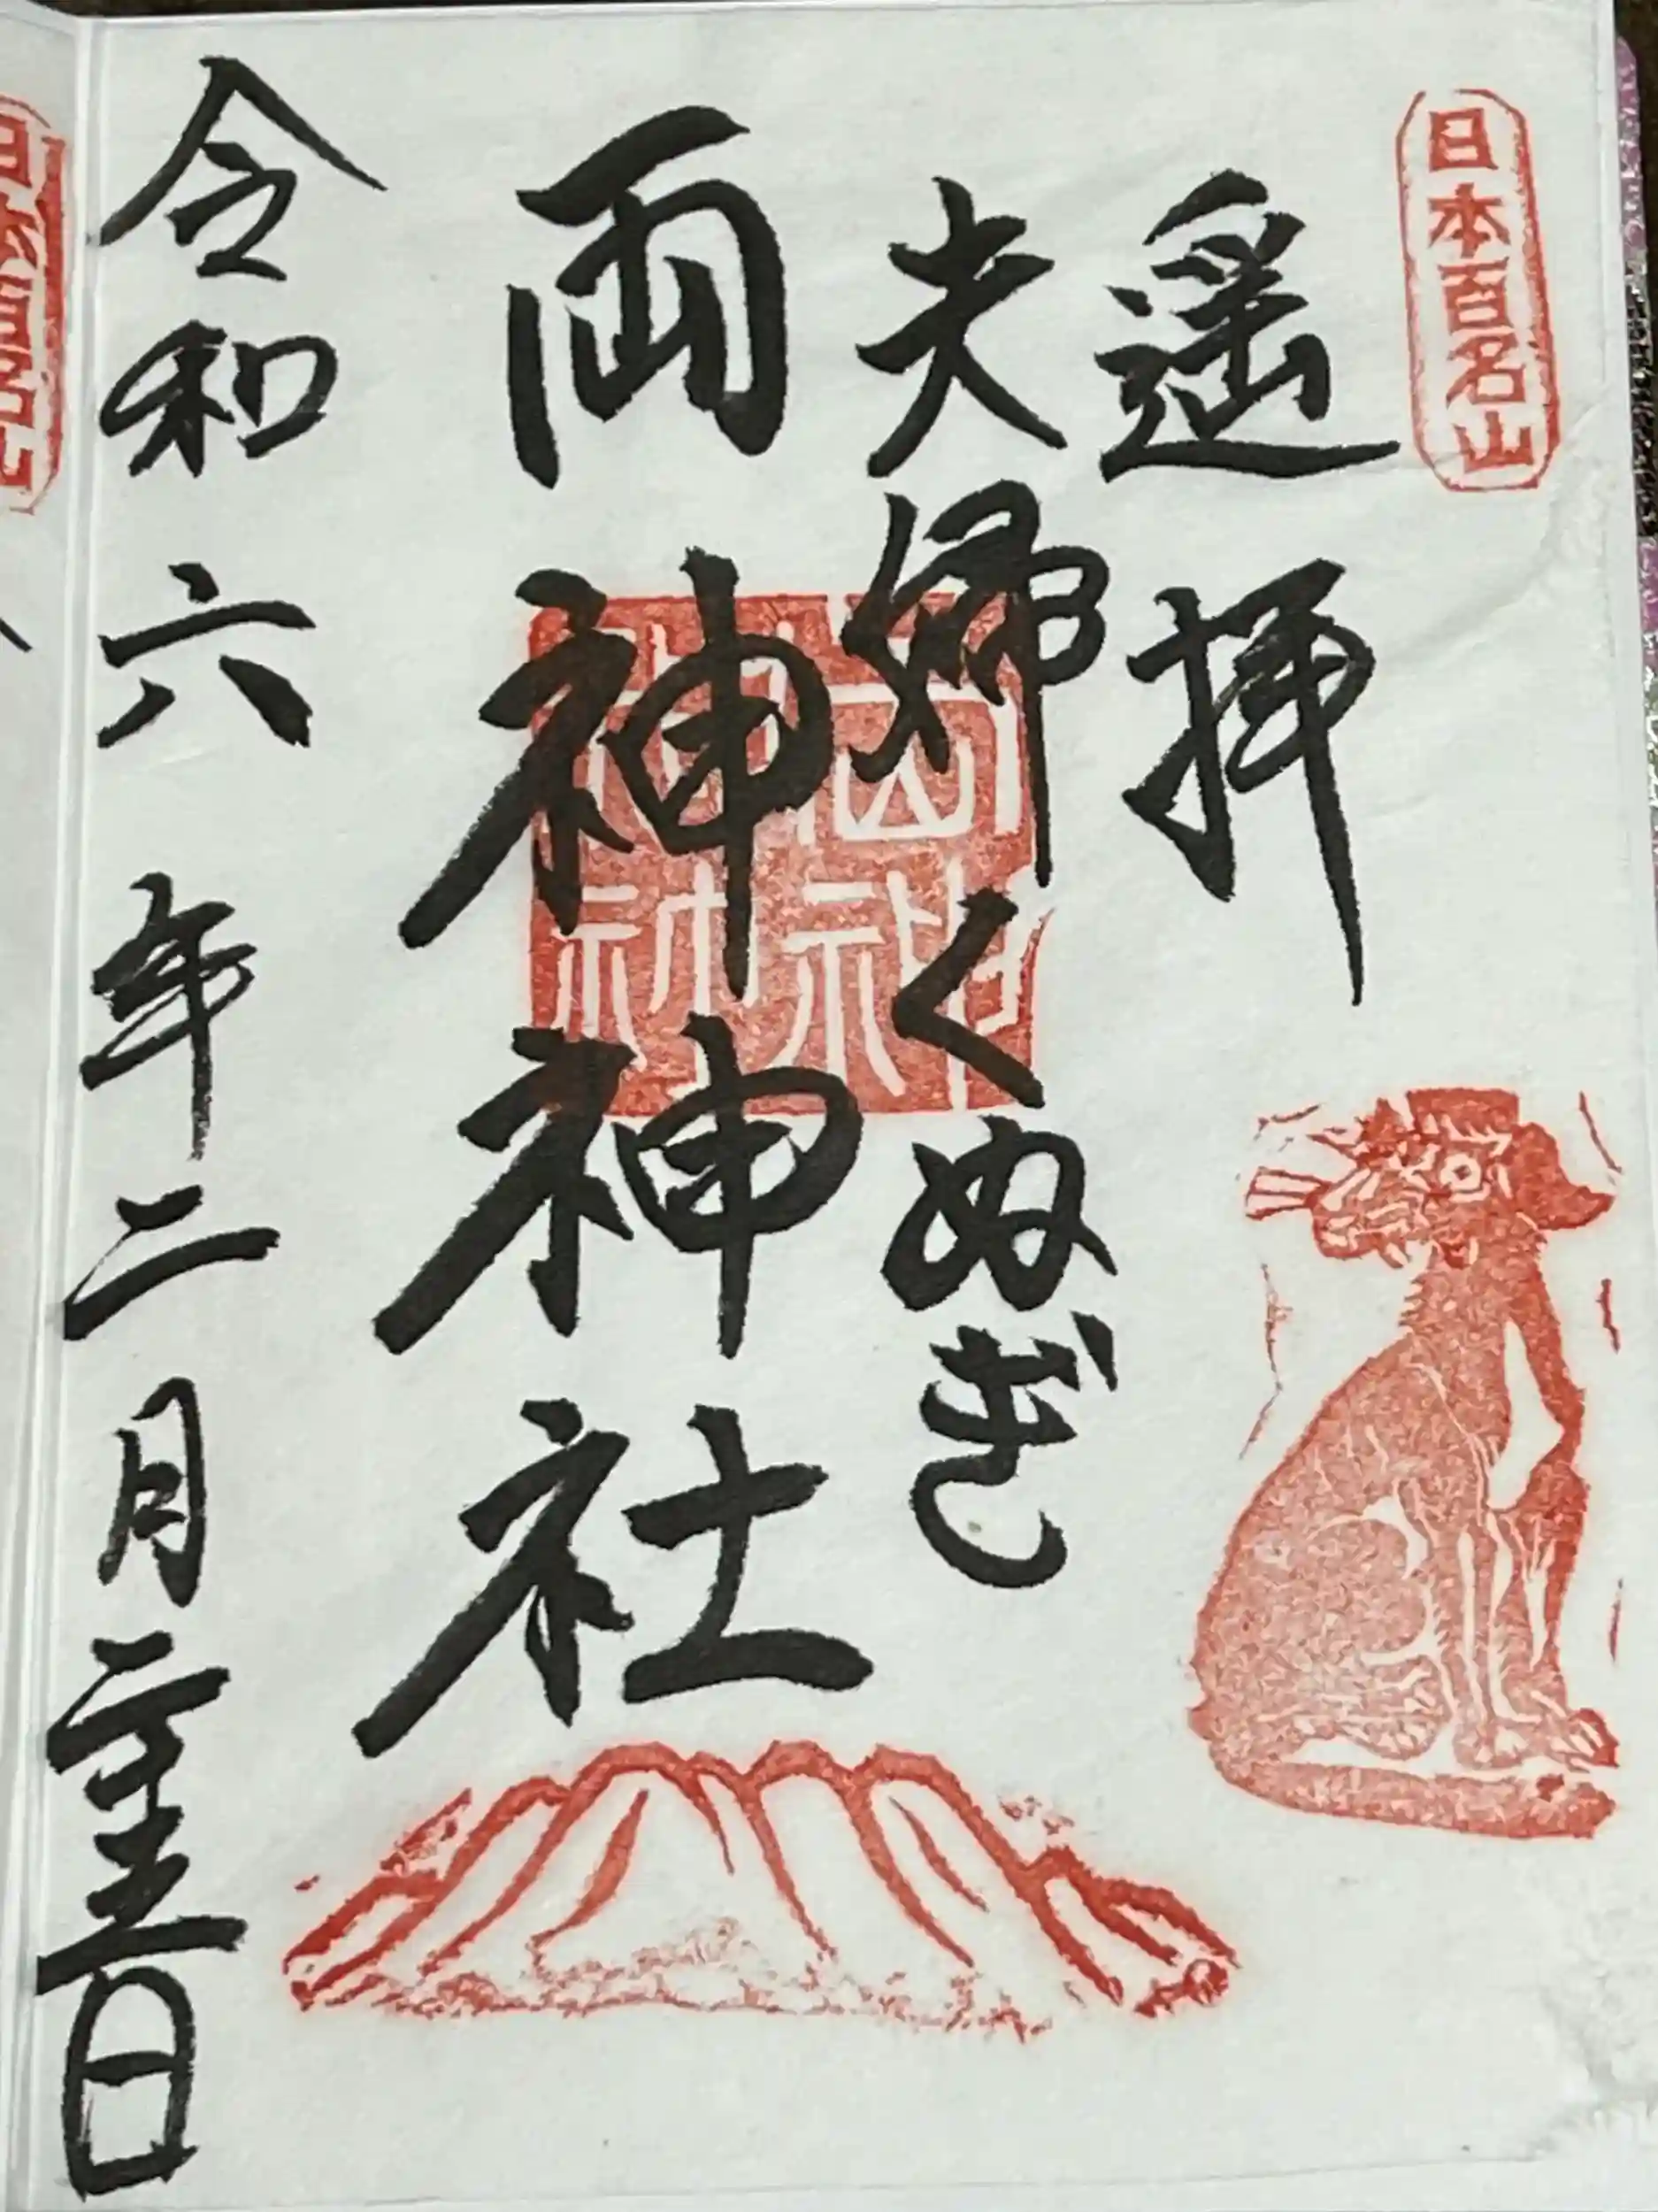 日本百名山
遥拝
夫婦くぬぎ
両神神社
両神神社
令和六年二月二十三日
日本百名山